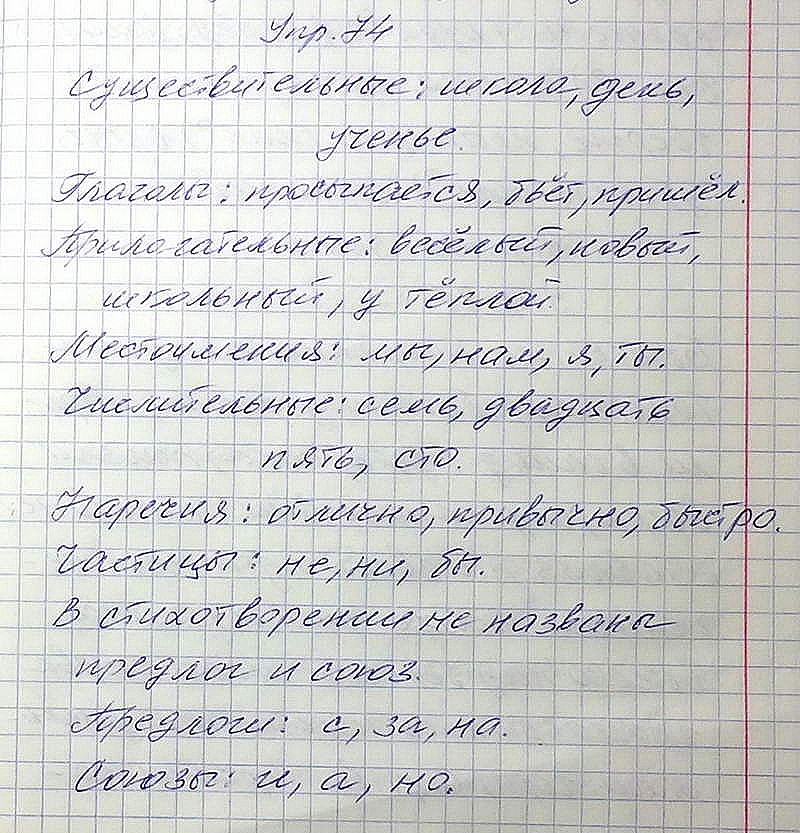 Упр. 74
Существительные: школа, день,
ученье.
Глаголы: просыпается, бьёт, пришёл.
Прилагательные: весёлый, новый,
школьный, у тёплой.
Местоимения: мы, нам, я, ты.
Числительные: семь, двадцать
пять, сто.
Наречия: отлично, привычно, быстро.
Частицы: не, ни, бы.
В стихотворении не названы
предлог и союз.
Предлоги: с, за, на.
Союзы: и, а, но.